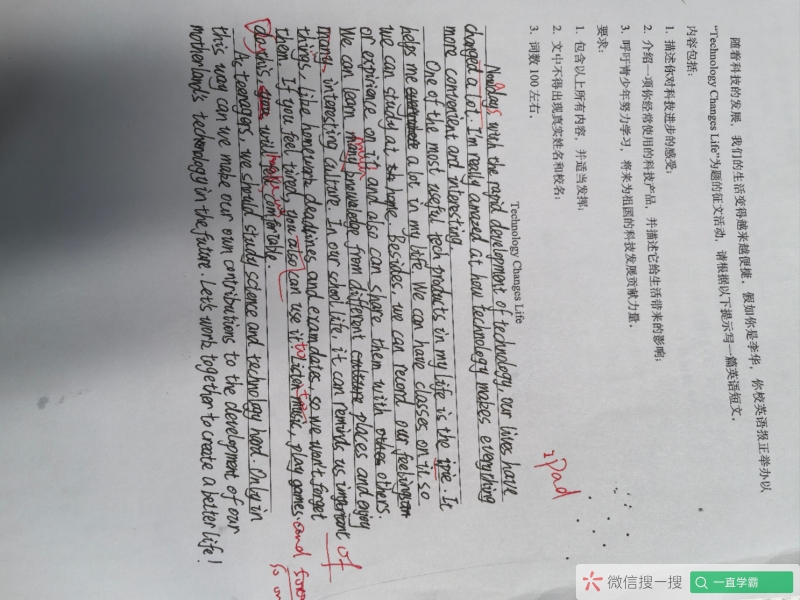 随着科技的发展，我们的生活变得越来越便捷，假如你是李华，你校英语报正举办以
“Technology Changes Life”为题的征文活动，请根据以下提示写一篇英语短文，
内容包括：
1. 描述你对科技进步的感受；
2. 介绍一项你经常使用的科技产品，并描述它给生活带来的影响；
3. 呼吁青少年努力学习，将来为祖国的科技发展贡献力量。
要求：
1. 包含以上所有内容，并适当发挥；
2. 文中不得出现真实姓名和校名；
3. 词数 100 左右。
Technology Changes Life
Nowdays with the rapid development of technology, our lives have
changed a lot. I'm really amazed at how technology makes everything
more convenient and interesting.
One of the most useful tech products in my life is the . It
iPad
helps me a lot in my life. We can have classes on it, so
we can study at home. Besides, we can record our feeling
or expirience on it and also can share them with others.
We can learn many knowledge from different places and enjoy
much
many interesting culture. In our school life, it can reminds us important
of
things, like homework deadlines and exam dates, so we won't forget
them. If you feel tired, you also can use it Listen music, play games.
to
and
so on
do this will feel comfortable.
As teenagers, we should study science and technology hard. Only in
this way can we make our own contributions to the development of our
motherland's technology in the future. Let's work together to create a better life!
微信搜一搜
一直学霸